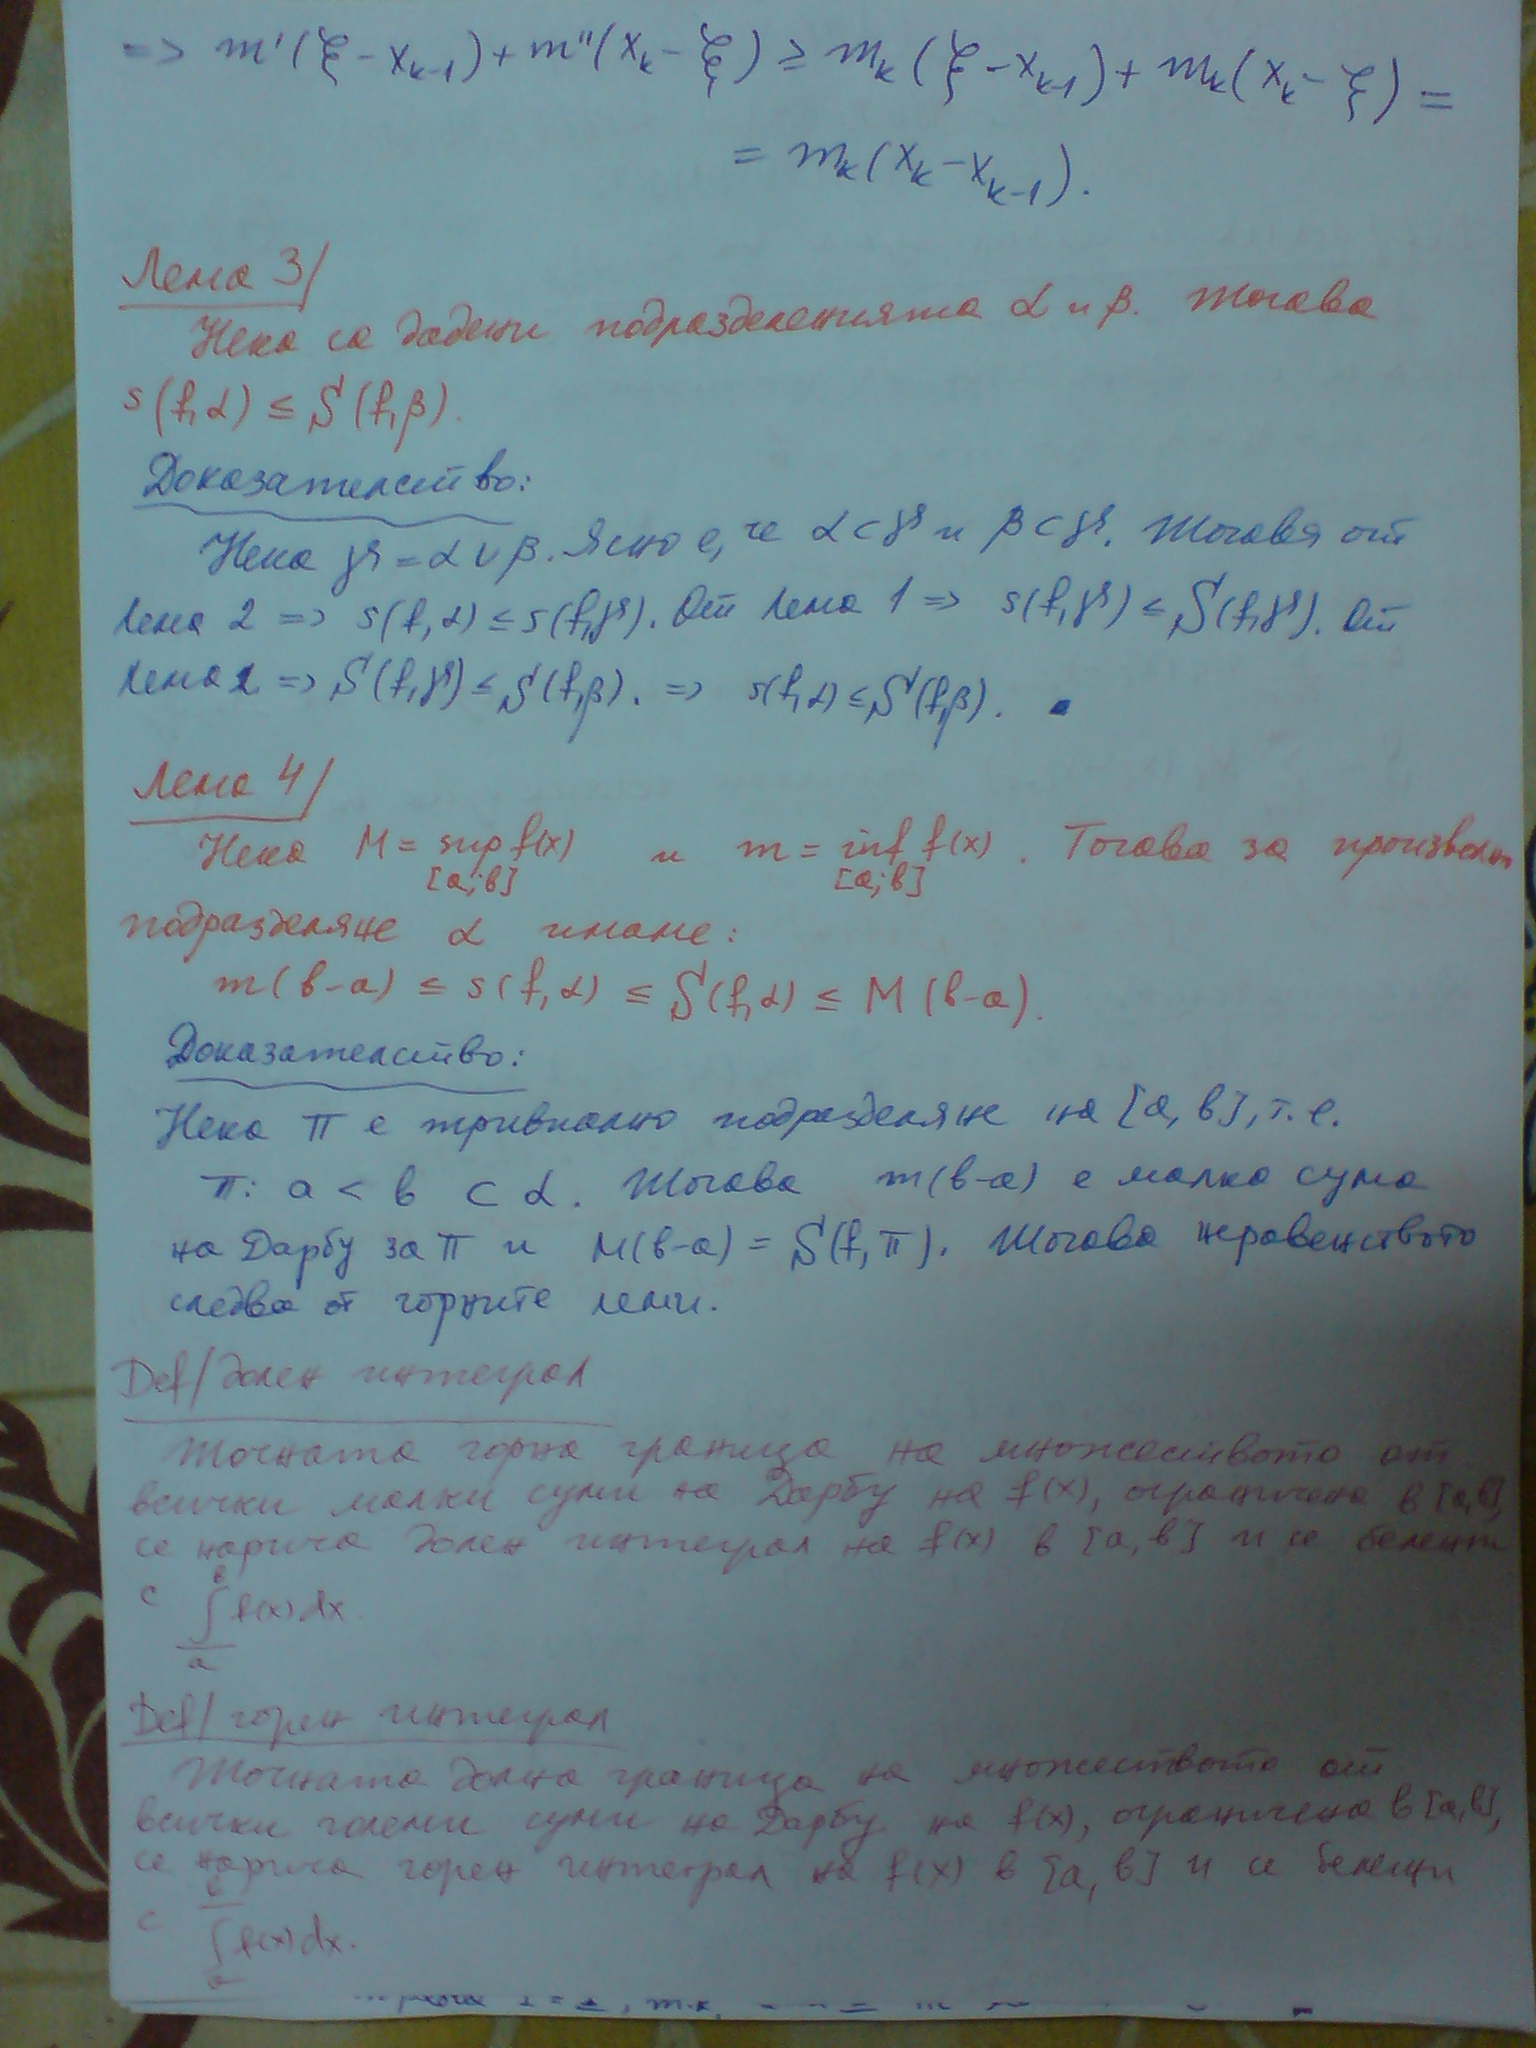 => m'(ξ - x_{k-1}) + m''(x_k - ξ) ≥ m_k(ξ - x_{k-1}) + m_k(x_k - ξ) =
= m_k(x_k - x_{k-1}).
Лема 3/
Нека са дадени подразделенията α и β. Тогава
s(f,α) ≤ S(f,β).
Доказателство:
Нека γ = α ∪ β. Ясно е, че α ⊂ γ и β ⊂ γ. Тогава от
Лема 2 => s(f,α) ≤ s(f,γ). От Лема 1 => s(f,γ) ≤ S(f,γ). От
Лема 2 => S(f,γ) ≤ S(f,β). => s(f,α) ≤ S(f,β). ▪
Лема 4/
Нека M = sup f(x) и m = inf f(x). Тогава за произволно
[a;b] [a;b]
подразделяне α имаме:
m(b-a) ≤ s(f,α) ≤ S(f,α) ≤ M(b-a).
Доказателство:
Нека π е тривиално подразделяне на [a,b], т.е.
π: a < b ⊂ α. Тогава m(b-a) е малка сума
на Дарбу за π и M(b-a) = S(f,π). Тогава неравенството
следва от горните леми.
Def/ долен интеграл
Точната горна граница на множеството от
всички малки суми на Дарбу на f(x), ограничена в [a,b],
се нарича долен интеграл на f(x) в [a,b] и се бележи
с ∫_a^b f(x)dx.
Def/ горен интеграл
Точната долна граница на множеството от
всички големи суми на Дарбу на f(x), ограничена в [a,b],
се нарича горен интеграл на f(x) в [a,b] и се бележи
с ∫_a^b f(x)dx.